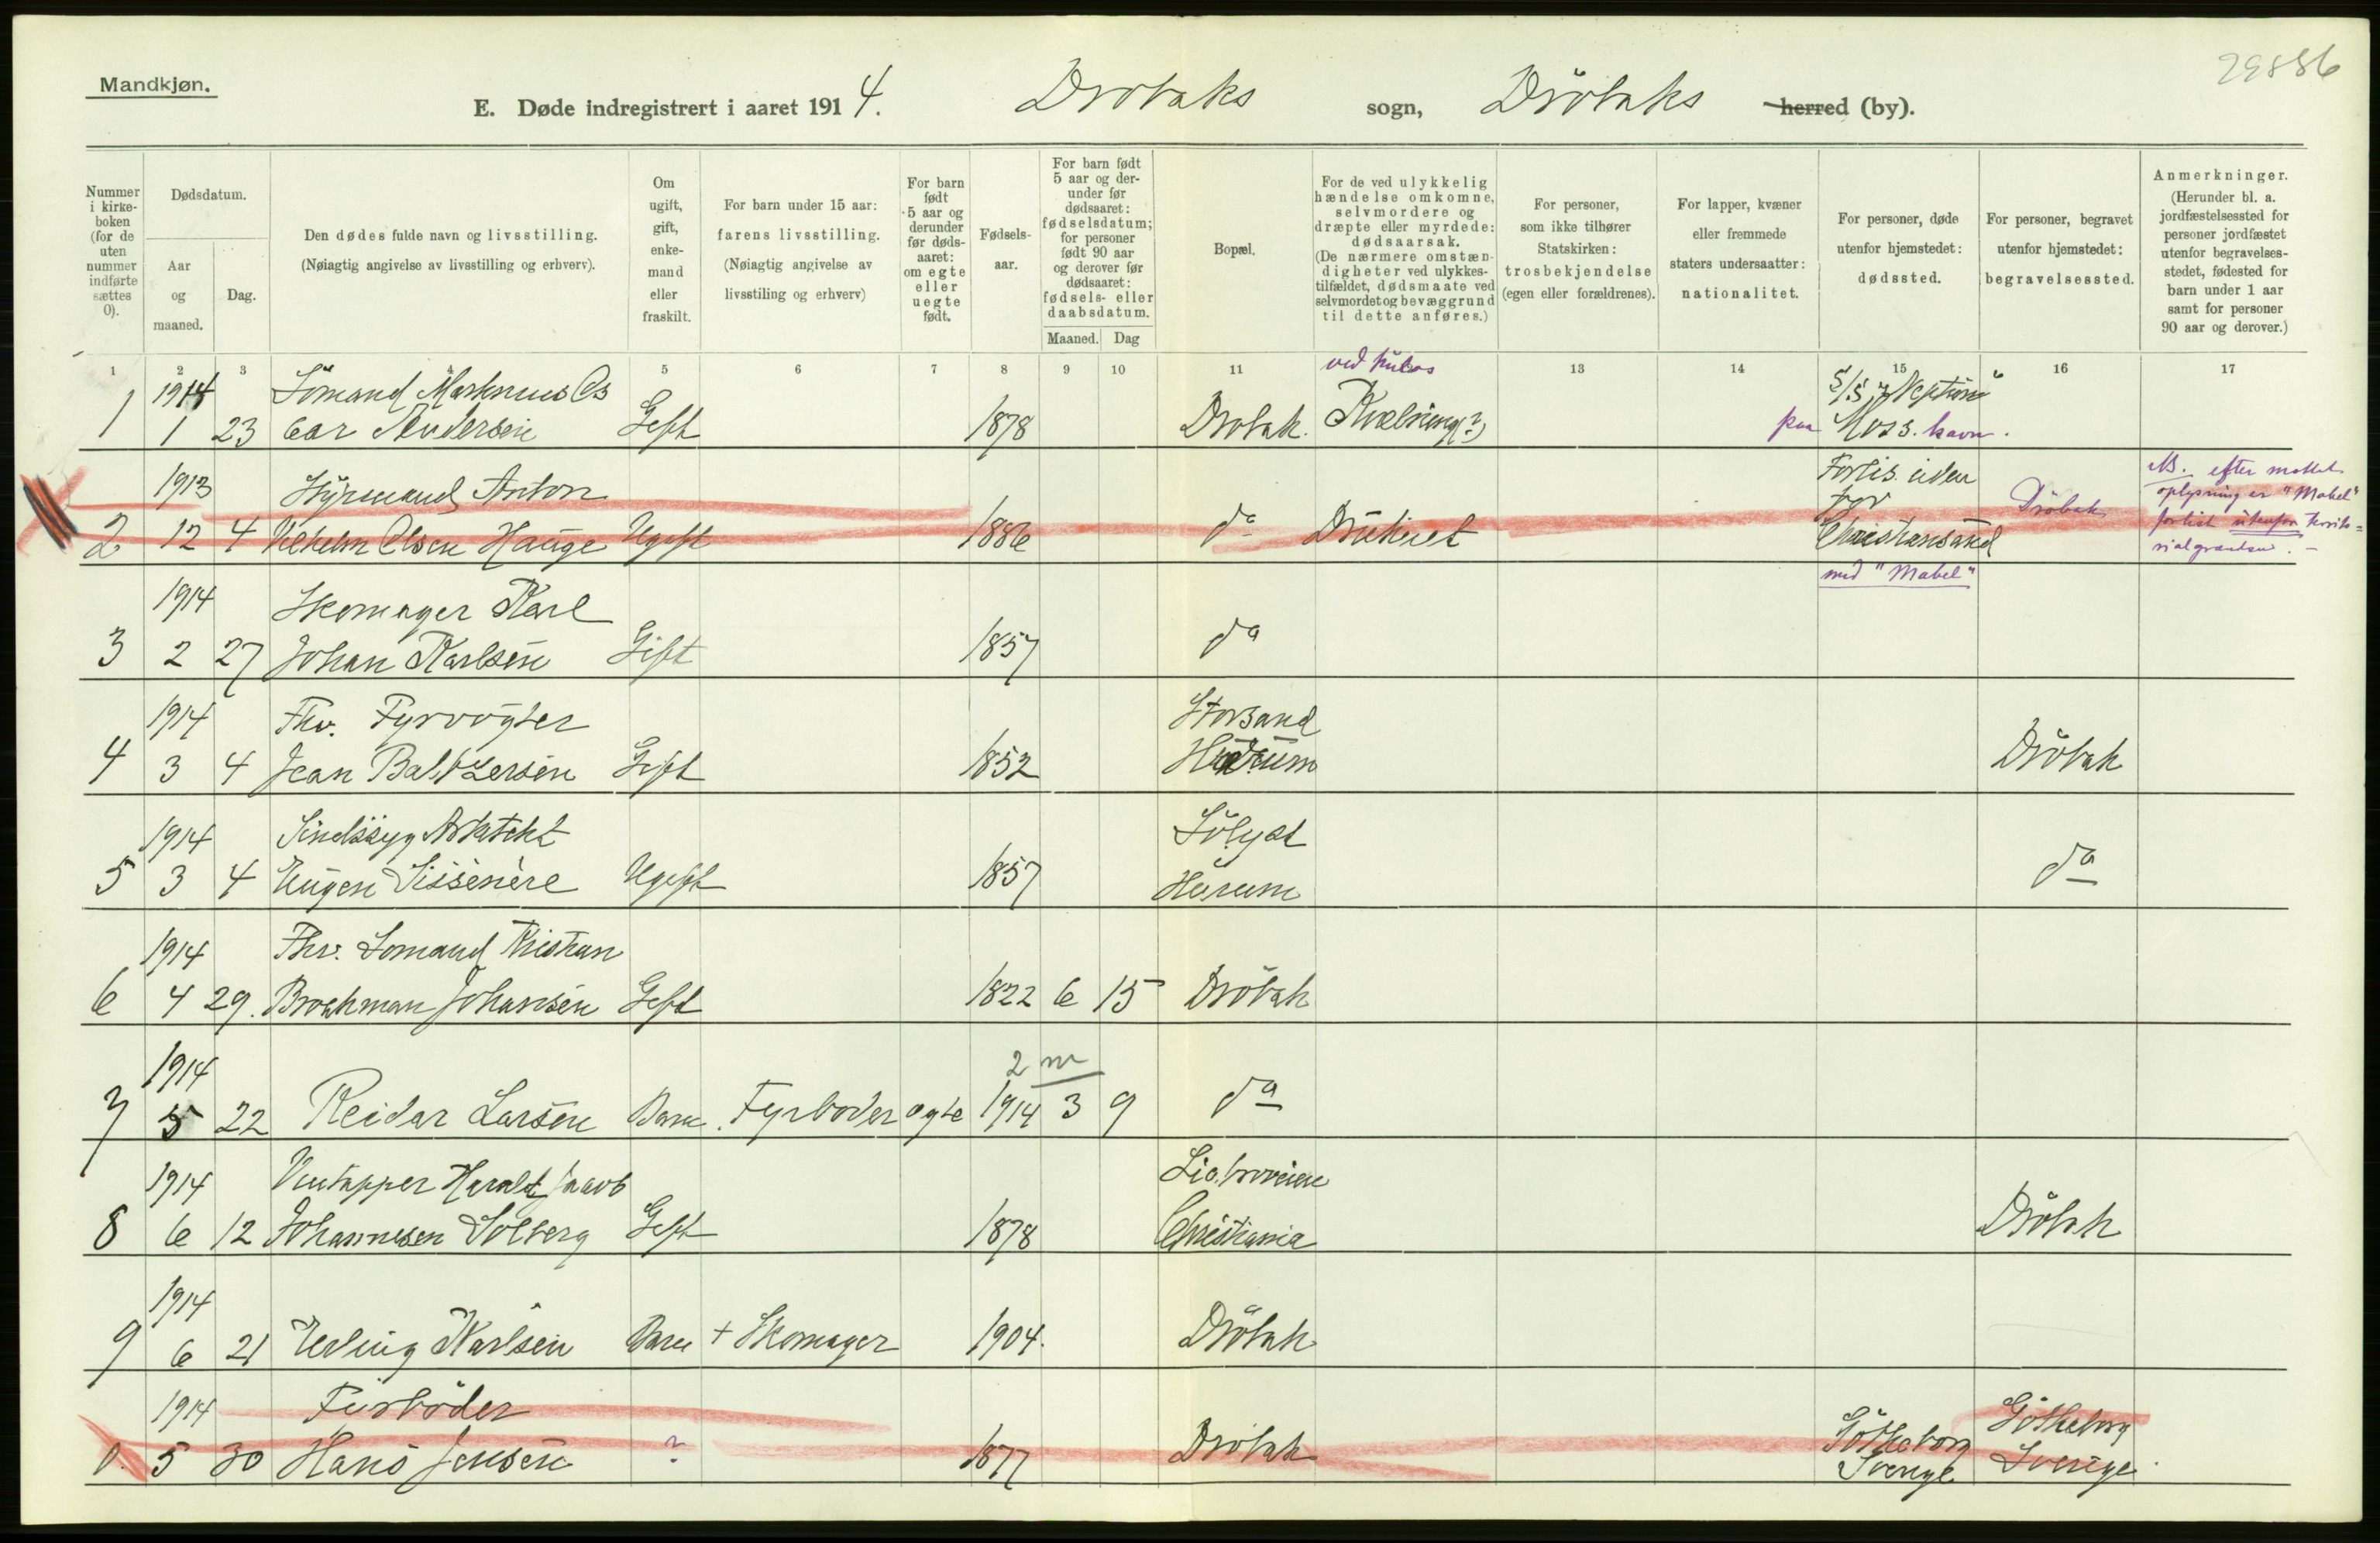 29886
Mandkjøn.
E. Døde indregistrert i aaret 1914. Drøbaks sogn, Drøbaks herred (by).
Nummer i kirke-boken (for de uten nummer indførte sættes 0).
Dødsdatum.
Aar og maaned.
Dag.
Den dødes fulde navn og livsstilling.
(Nøiagtig angivelse av livsstilling og erhverv).
Om ugift, gift, enke-mand eller fraskilt.
For barn under 15 aar: farens livsstilling. (Nøiagtig angivelse av livsstiling og erhverv)
For barn født 5 aar og derunder før døds-aaret: om egte eller uegte født.
Fødsels-aar.
For barn født 5 aar og der-under før dødsaaret: fødselsdatum; for personer født 90 aar og derover før dødsaaret: fødsels- eller daabsdatum.
Maaned. Dag
Bopæl.
For de ved ulykkelig hændelse omkomne, selvmordere og dræpte eller myrdede: dødsaarsak. (De nærmere omstæn-digheter ved ulykkes-tilfældet, dødsmaate ved selvmordet og bevæggrund til dette anføres.)
For personer, som ikke tilhører Statskirken: trosbekjendelse (egen eller forældrenes).
For lapper, kvæner eller fremmede staters undersaatter: nationalitet.
For personer, døde utenfor hjemstedet: dødssted.
For personer, begravet utenfor hjemstedet: begravelsessted.
Anmerkninger. (Herunder bl. a. jordfæstelsessted for personer jordfæstet utenfor begravelses-stedet, fødested for barn under 1 aar samt for personer 90 aar og derover.)
1 2 3 4 5 6 7 8 9 10 11 12 13 14 15 16 17
1914 Sömand Markmus Os ved kulos S/S "Neptun"
1 1 23 car Andersen Gift 1878 Drøbak. Kvælning(?) paa Moss. havn.
1913 Styrmand Anton Forlis uden for NB. efter mottat oplysning er "Mabel"
2 12 4 Vilhelm Olsen Hauge Ugift 1886 da Druknet Christiansand Drøbak forlist utenfor territo=
med "Mabel" rialgrænsen. -
1914 Skomager Karl
3 2 27 Johan Karlsen Gift 1857 da
1914 Fhv. Fyrvogter Storsand
4 3 4 Jean Baltzersen Gift 1852 Hurum Drøbak
1914 Sindssyg Arkitekt Sölyst
5 3 4 Eugen Sissenère Ugift 1857 Hurum da
1914 Fhv. Sömand Kristian
6 4 29. Brochman Johansen Gift 1822 6 15 Drøbak
1914 2 m
7 5 22 Reidar Larsen Barn. Fyrböder egte 1914 3 9 da
1914 Vintapper Harald Jacob Lio.broveien
8 6 12 Johannesen Solberg Gift 1878 Christiania Drøbak
1914
9 6 21 Erling Karlsen Barn + Skomager 1904. Drøbak
1914 Fyrböder Götheborg Götheborg
0. 5 30 Hans Jensen ? 1877 Drøbak Sverige Sverige